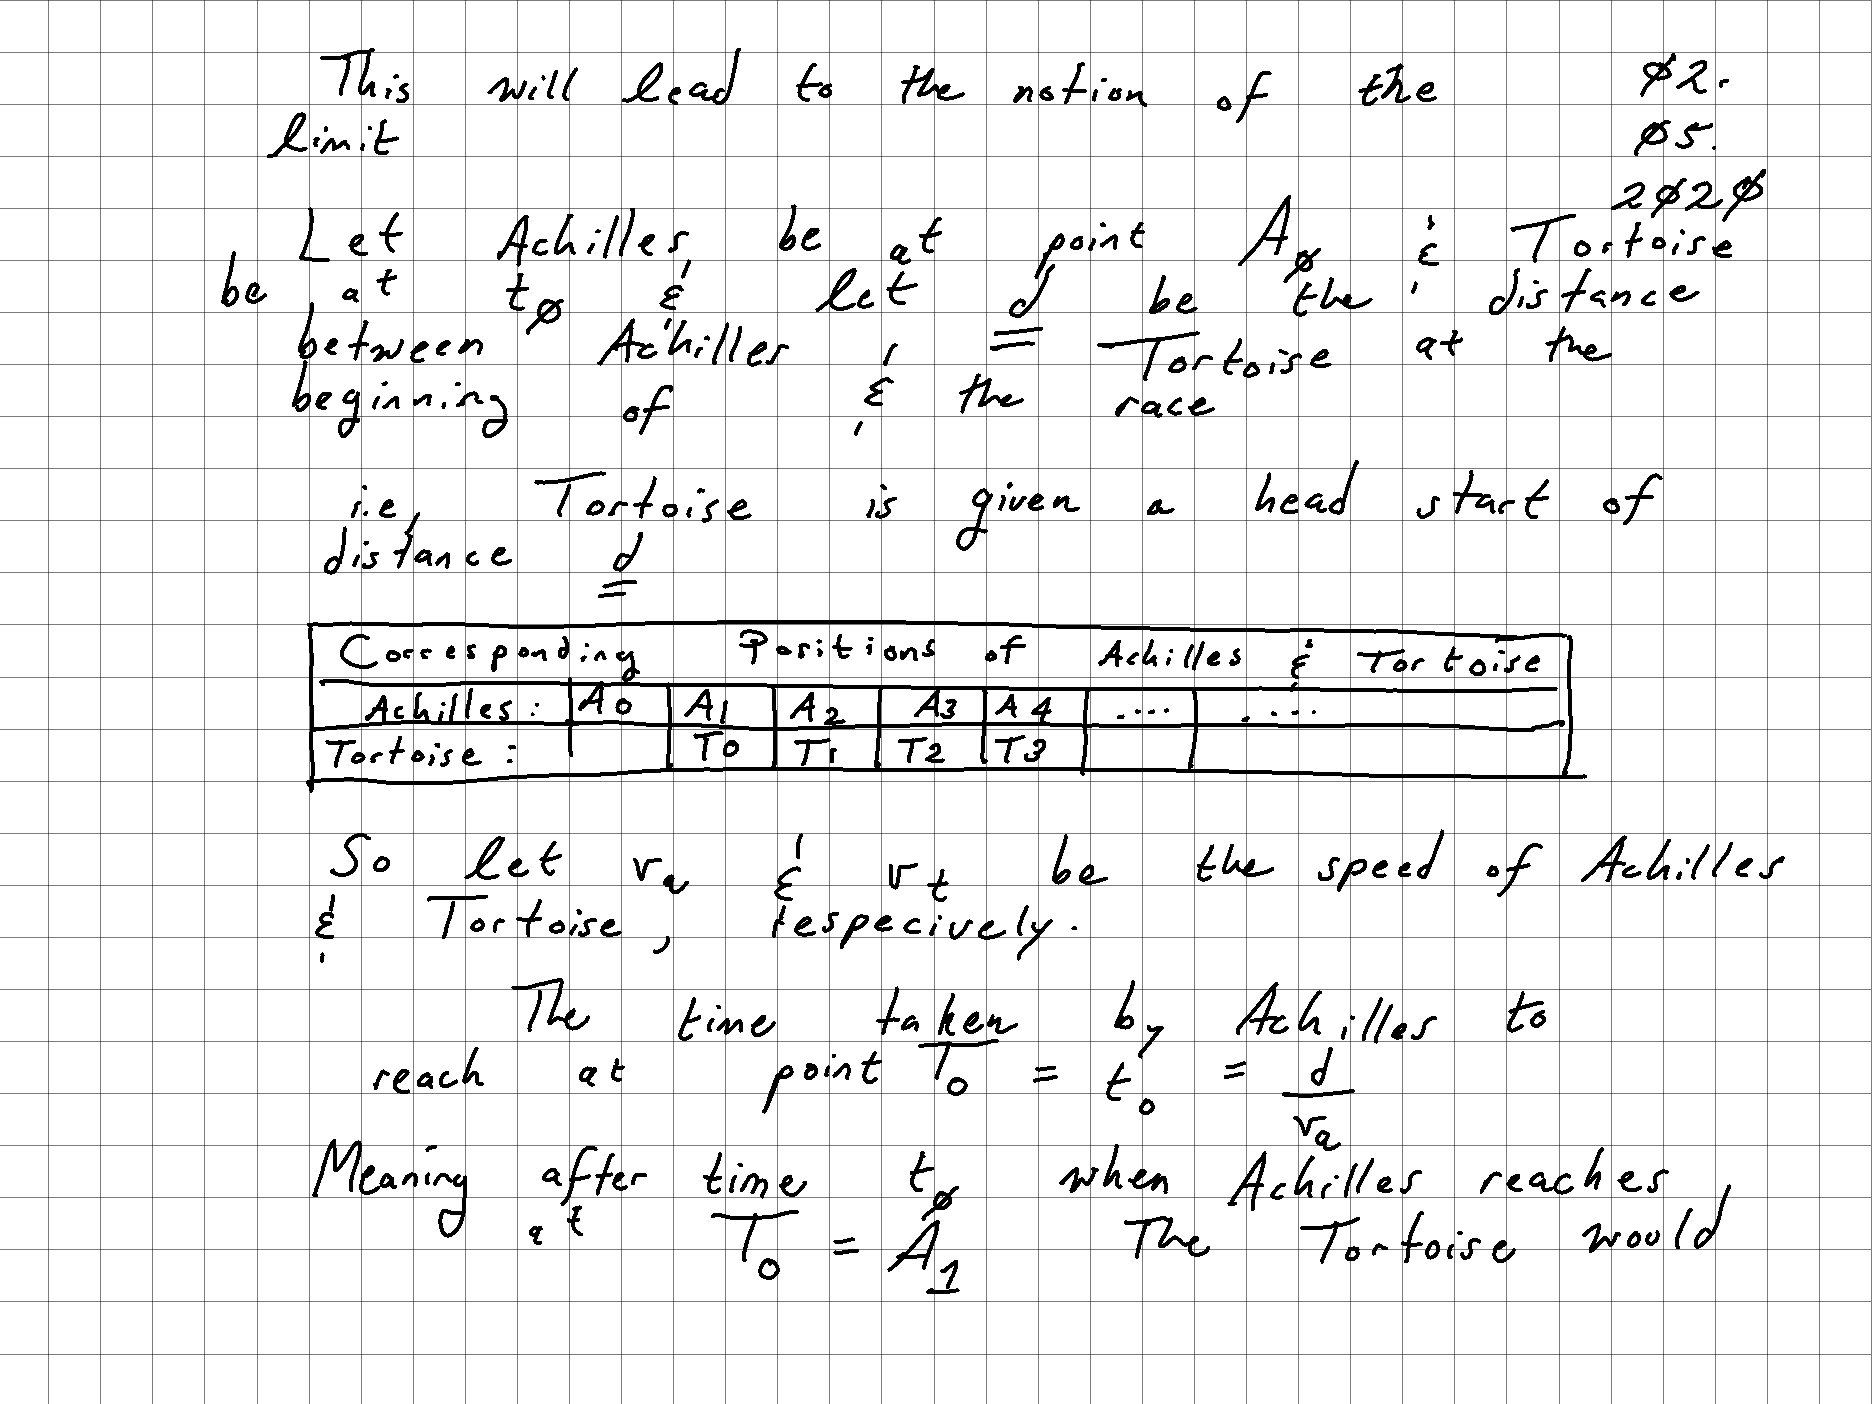 This will lead to the notion of the
limit
Ø2.
Ø5.
2Ø2Ø
Let Achilles, be at point A_Ø & Tortoise
be at t_Ø & let d be the distance
between Achilles & Tortoise at the
beginning of & the race
i.e, Tortoise is given a head start of
distance d
Corresponding Positions of Achilles & Tortoise
Achilles: A0 A1 A2 A3 A4 .... ....
Tortoise: T0 T1 T2 T3
So let v_a & v_t be the speed of Achilles
& Tortoise, respecively.
The time taken by Achilles to
reach at point T_0 = t_0 = d/v_a
Meaning after time t_Ø when Achilles reaches
at T_0 = A_1 The Tortoise would